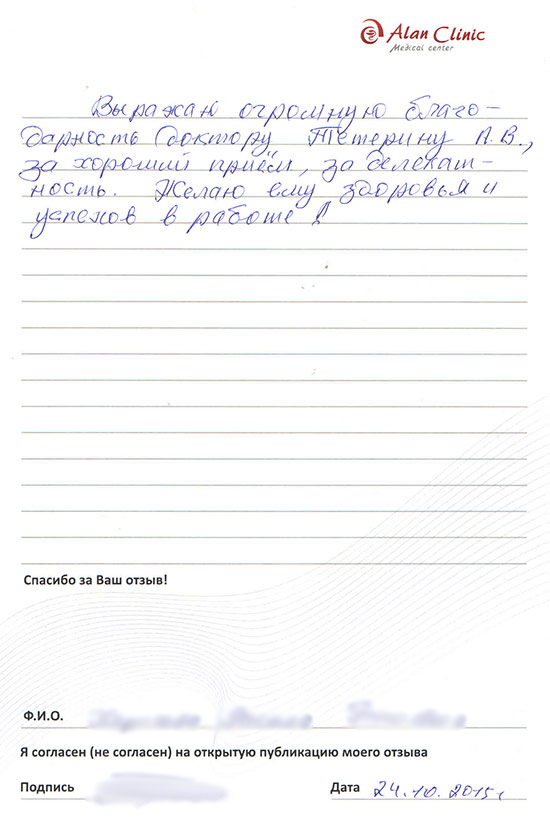 Alan Clinic
Medical center
Выражаю огромную благо-
дарность доктору Тетерину А.В.,
за хороший приём, за деликат-
ность. Желаю ему здоровья и
успехов в работе!
Спасибо за Ваш отзыв!
Ф.И.О.
Я согласен (не согласен) на открытую публикацию моего отзыва
Подпись
Дата 24.10.2015г